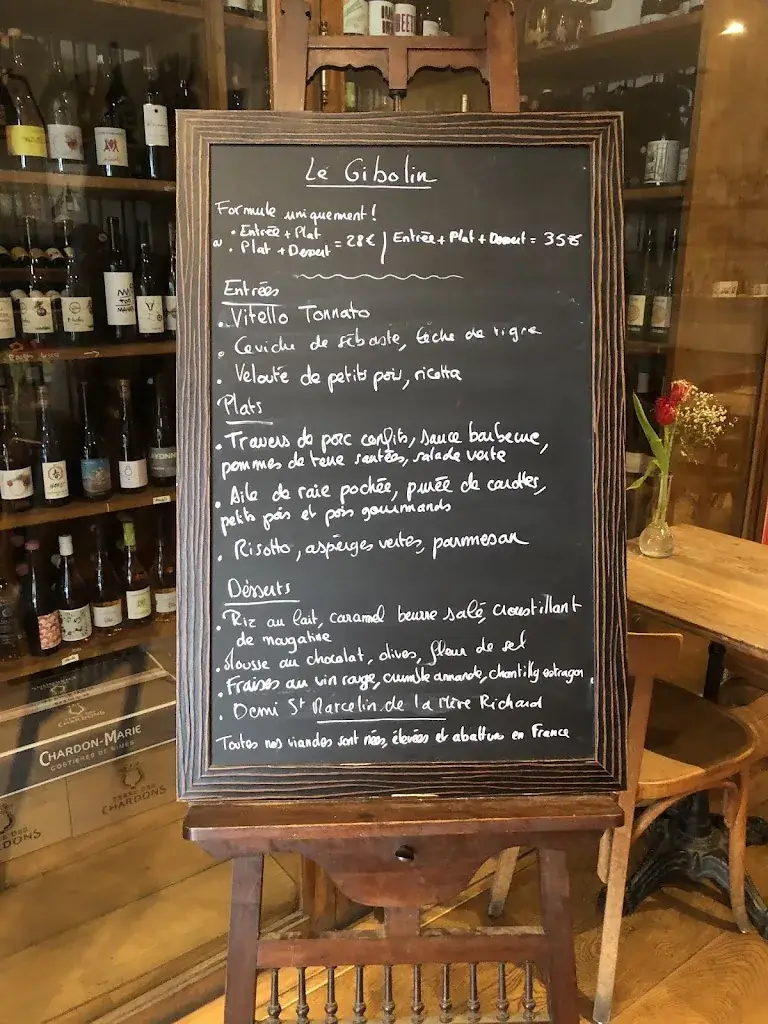 Le Gibolin
Formule uniquement!
• Entrée + Plat
ou • Plat + Dessert = 28€ / Entrée + Plat + Dessert = 35€
Entrées
• Vitello Tonnato
• Ceviche de sébaste, lèche de tigre
• Velouté de petits pois, ricotta
Plats
• Travers de porc confits, sauce barbecue,
pommes de terre sautées, salade verte
• Aile de raie pochée, purée de carottes,
petits pois et pois gourmands
• Risotto, asperges vertes, parmesan
Désserts
• Riz au lait, caramel beurre salé, croustillant
de nougatine
• Mousse au chocalat, olives, fleur de sel
• Fraises au vin rouge, crumble amande, chantilly estragon
• Demi St Marcelin de la Mère Richard
Toutes nos viandes sont nées, élevées et abattues en France
CHARDON-MARIE
COSTIÈRES DE NIMES
TERRE DES
CHARDONS